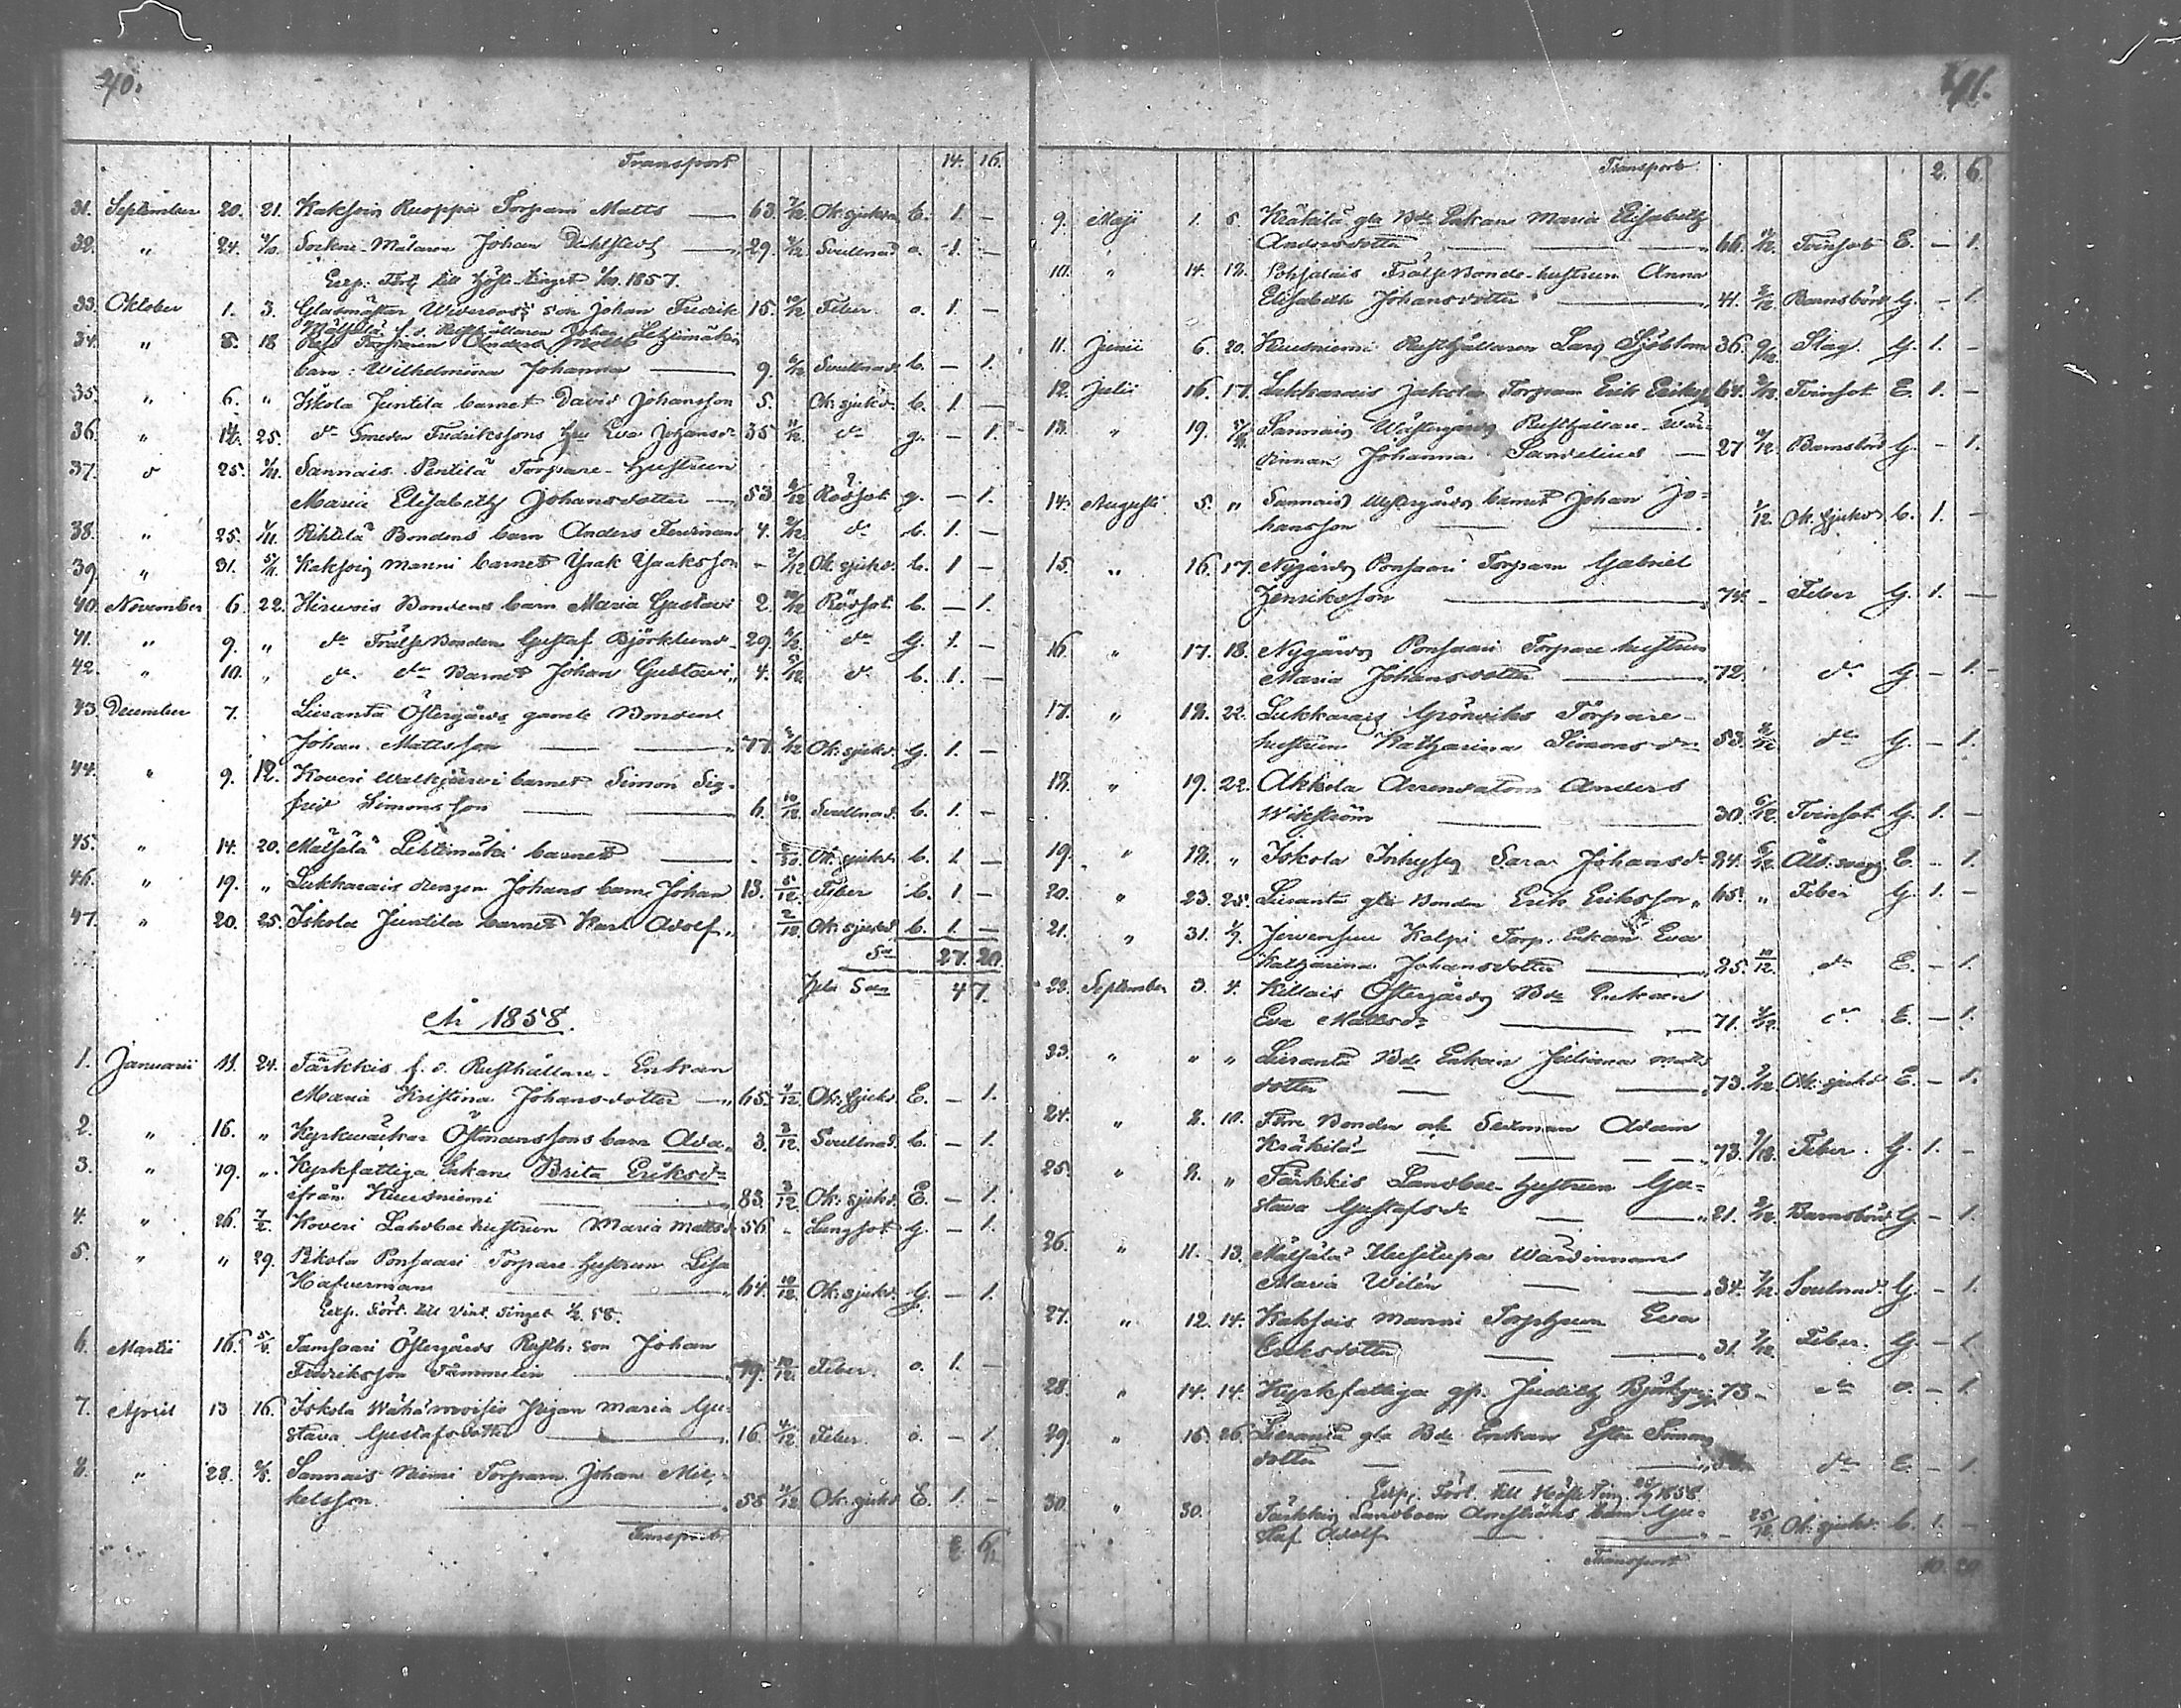 40.
Transport 14. 16.
31. September 20. 21. Kaksois Ruoppa Torparn Matts — 63. 7/12 Ok. sjukd. C. 1. —
32. " 24. 4/10. Sockne-Målaren Johan Dahlstedt — 29. 4/12 Svullnad o. 1. —
Exp. Fört. till Höste-tinget 1/10. 1857.
33. Oktober 1. 3. Glasmästar Weveroos's son Johan Fredrik 15. 10/12 Feber o. 1. —
Mälsälä f. d. Rusthållaren Johan Lehtimäkis
34. " 5. 18 Torparen Anders
barn: Wilhelmina Johanna — 9. 6/12 Svullnad. b. — 1.
35. " 6. " Iskola Juntila barnet David Johansson 5. Ok. sjukd. b. 1. —
36. " 14. 25. do Smeden Fredrikssons hu Eva Johansdr 35 11/12 do g. — 1.
37. d 25. 1/11. Sannais Pentilä Torpare-Hustrun
Maria Elisabeth Johansdotter — 53 6/12 Rödsot g. — 1.
38. " 25. 1/11. Rihtilä Bondens barn Anders Ferdinand 4. 9/12 do b. 1. —
39. " 31. 5/11. Kaksois Manni barnet Isaak Isaaksson - 2/12 Ok. sjukd. b. 1 —
40. November 6. 22. Hirvois Bondens barn Maria Gustava 2. 10/12 Rödsot b. — 1.
41. " 9. " do FrälseBonden Gustaf Björklund 29. 6/12 do G. 1. —
42. " 10. " do do Barnet Johan Gustavi 4. 5/12 do b. 1. —
43. December 7. Liesanta Östergårds gamle Bonden
Johan Mattsson — — 77. 4/12 Ok. sjukd. G. 1. —
44. " 9. 12. Koveri Walkjärvi barnet Simon Sig-
frid Simonsson — 6. 10/12 Svullnad. b. 1. —
45. " 14. 20. Mälsälä Lehtimäki barnet — Ok. sjukd. b. 1. —
46. " 19. " Lukkarais drengen Johans barn Johan 13. 5/12 Feber b. 1 —
47. " 20. 25. Iskola Juntila barnet Karl Adolf 2/12 Ok. sjukd. b. 1. —
Sa 27. 20.
Hela San 47.
År 1858.
1. Januarii 11. 24. Tärkkis f. d. Rusthållare-Enkan
Maria Kristina Johansdotter — 65. 9/12 Ok. sjukd. E. — 1.
2. " 16. " Kyrkväktar Östmanssons barn Ada 3. 3/12 Svullnad. b. — 1.
3. " 19. " Kyrkfattiga Enkan Brita Eriksdr
ifrån Kuusniemi 83. 3/12 Ok. sjukd. E. — 1.
4. " 26. 7/2. Koveri Landbohustrun Maria Mattsdr 56 - Lungsot g. — 1.
5. " " 29. Pekola Ponsaari Torpare-Hustrun Lisa
Hafverman 64. 10/12 Ok. sjukd. G. — 1.
Exp. Fört. till Vint. Tinget 1/2. 58.
6. Martii 16. 5/4. Tamsaari Östergårds Rusth: son Johan
Fredriksson Tammelin 19. 10/12. Feber. o. 1. —
7. April 13 16. Iskola Wähäruoisis Pigan Maria Gu-
stava Gustafsdotter — 16. 4/12 Feber. o. — 1.
8. " 28. 2/5. Sannais Niemi Torparn Johan Mic-
kelsson. — 55 11/12 Ok. sjukd. E. 1. —
Transport 2. 6.
41.
Transport 2. 6.
9. Maji 1. 5. Kräkilä gla Bde Enkan Maria Elisabeth
Andersdotter — 66. 11/12 Tvinsot E. — 1.
10. " 14. 18. Lohsalais FrälseBonde-hustrun Anna
Elisabeth Johansdotter — 41. 2/12 Barnsbörd G. — 1.
11. Junii 6. 20. Kuusniemi Rusthållaren Lars Sjöblom 36. 9/12 Slag. G. 1. —
12. Julii 16. 17. Lukkarais Jakola Torparn Erik Eriksson 64. 9/12 Tvinsot E. 1. —
13. " 19. Sannais Wästergårds Rusthållare-Wär-
dinnan Johanna Sandelius — 27 Barnsbörd G. — 1.
14. Augusti 5. " Sannais Westergårds barnet Johan Jo-
hansson — 1/12 Ok. sjukd. b. 1. —
15. " 16. 17. Nygårds Ponsaari Torparn Gabriel
Henriksson — 74. - Feber G. 1. —
16. " 17. 18. Nygårds Ponsaari Torpare hustrun
Maria Johansdotter — 72. do G. — 1. —
17. " 18. 22. Lukkarais Grönviks Torpare-
hustrun Katharina Simonsdr 53. 8/12 do G. — 1.
18. " 19. 22. Akkola Arrendatorn Anders
Wikström — 30. 6/12. Tvinsot G. 1. —
19. " 18. " Iskola Inhyses Sara Johansdr 84. 5/12. Åld.svag. E. — 1.
20. " 23. 25. Liesanta gla Bonden Erik Eriksson 65. " Feber G. 1. —
21. " 31. Jervensuu Kalpi Torp. Enkan Eva
Katharina Johansdotter — 85. 10/12. do E. — 1.
22. September 3. 4. Killais Östergårds Bde Enkan
Eva Mattsdr — 71. do E. — 1.
23. " " " Liesanta Bde Enkan Juliana Matts
dotter — — 73. 9/12 Ok. sjukd. E. — 1.
24. " 8. 10. Före Bonden och Sexman Adam
Kräkilä — — 73. Feber. G. 1. —
25. " 8. " Tärkkis Landbo-Hustrun Gu-
stava Gustafsdr — — 21. 9/12 Barnsbörd G. — 1.
26. " 11. 13. Mälsälä Uusitupa Wärdinnan
Maria Wilén — 34. 7/12. Svulnad. G. — 1.
27. " 12. 14. Kaksois Manni Torphustrun Eva
Eriksdotter — — 31. 7/12 Feber. G. — 1.
28. " 14. 14. Kyrkfattiga Judith 73 — do o. — 1.
29. " 15. 26. Liesanta gla Bde Enkan Ester Simons
dotter — do E. — 1.
Exp. Fört. till Höste Ting 1858.
30. " 30. Tärkkis Landboen barn Gu-
staf Adolf — — 25/12. Ok. sjukd. b. 1. —
Transport 10. 20